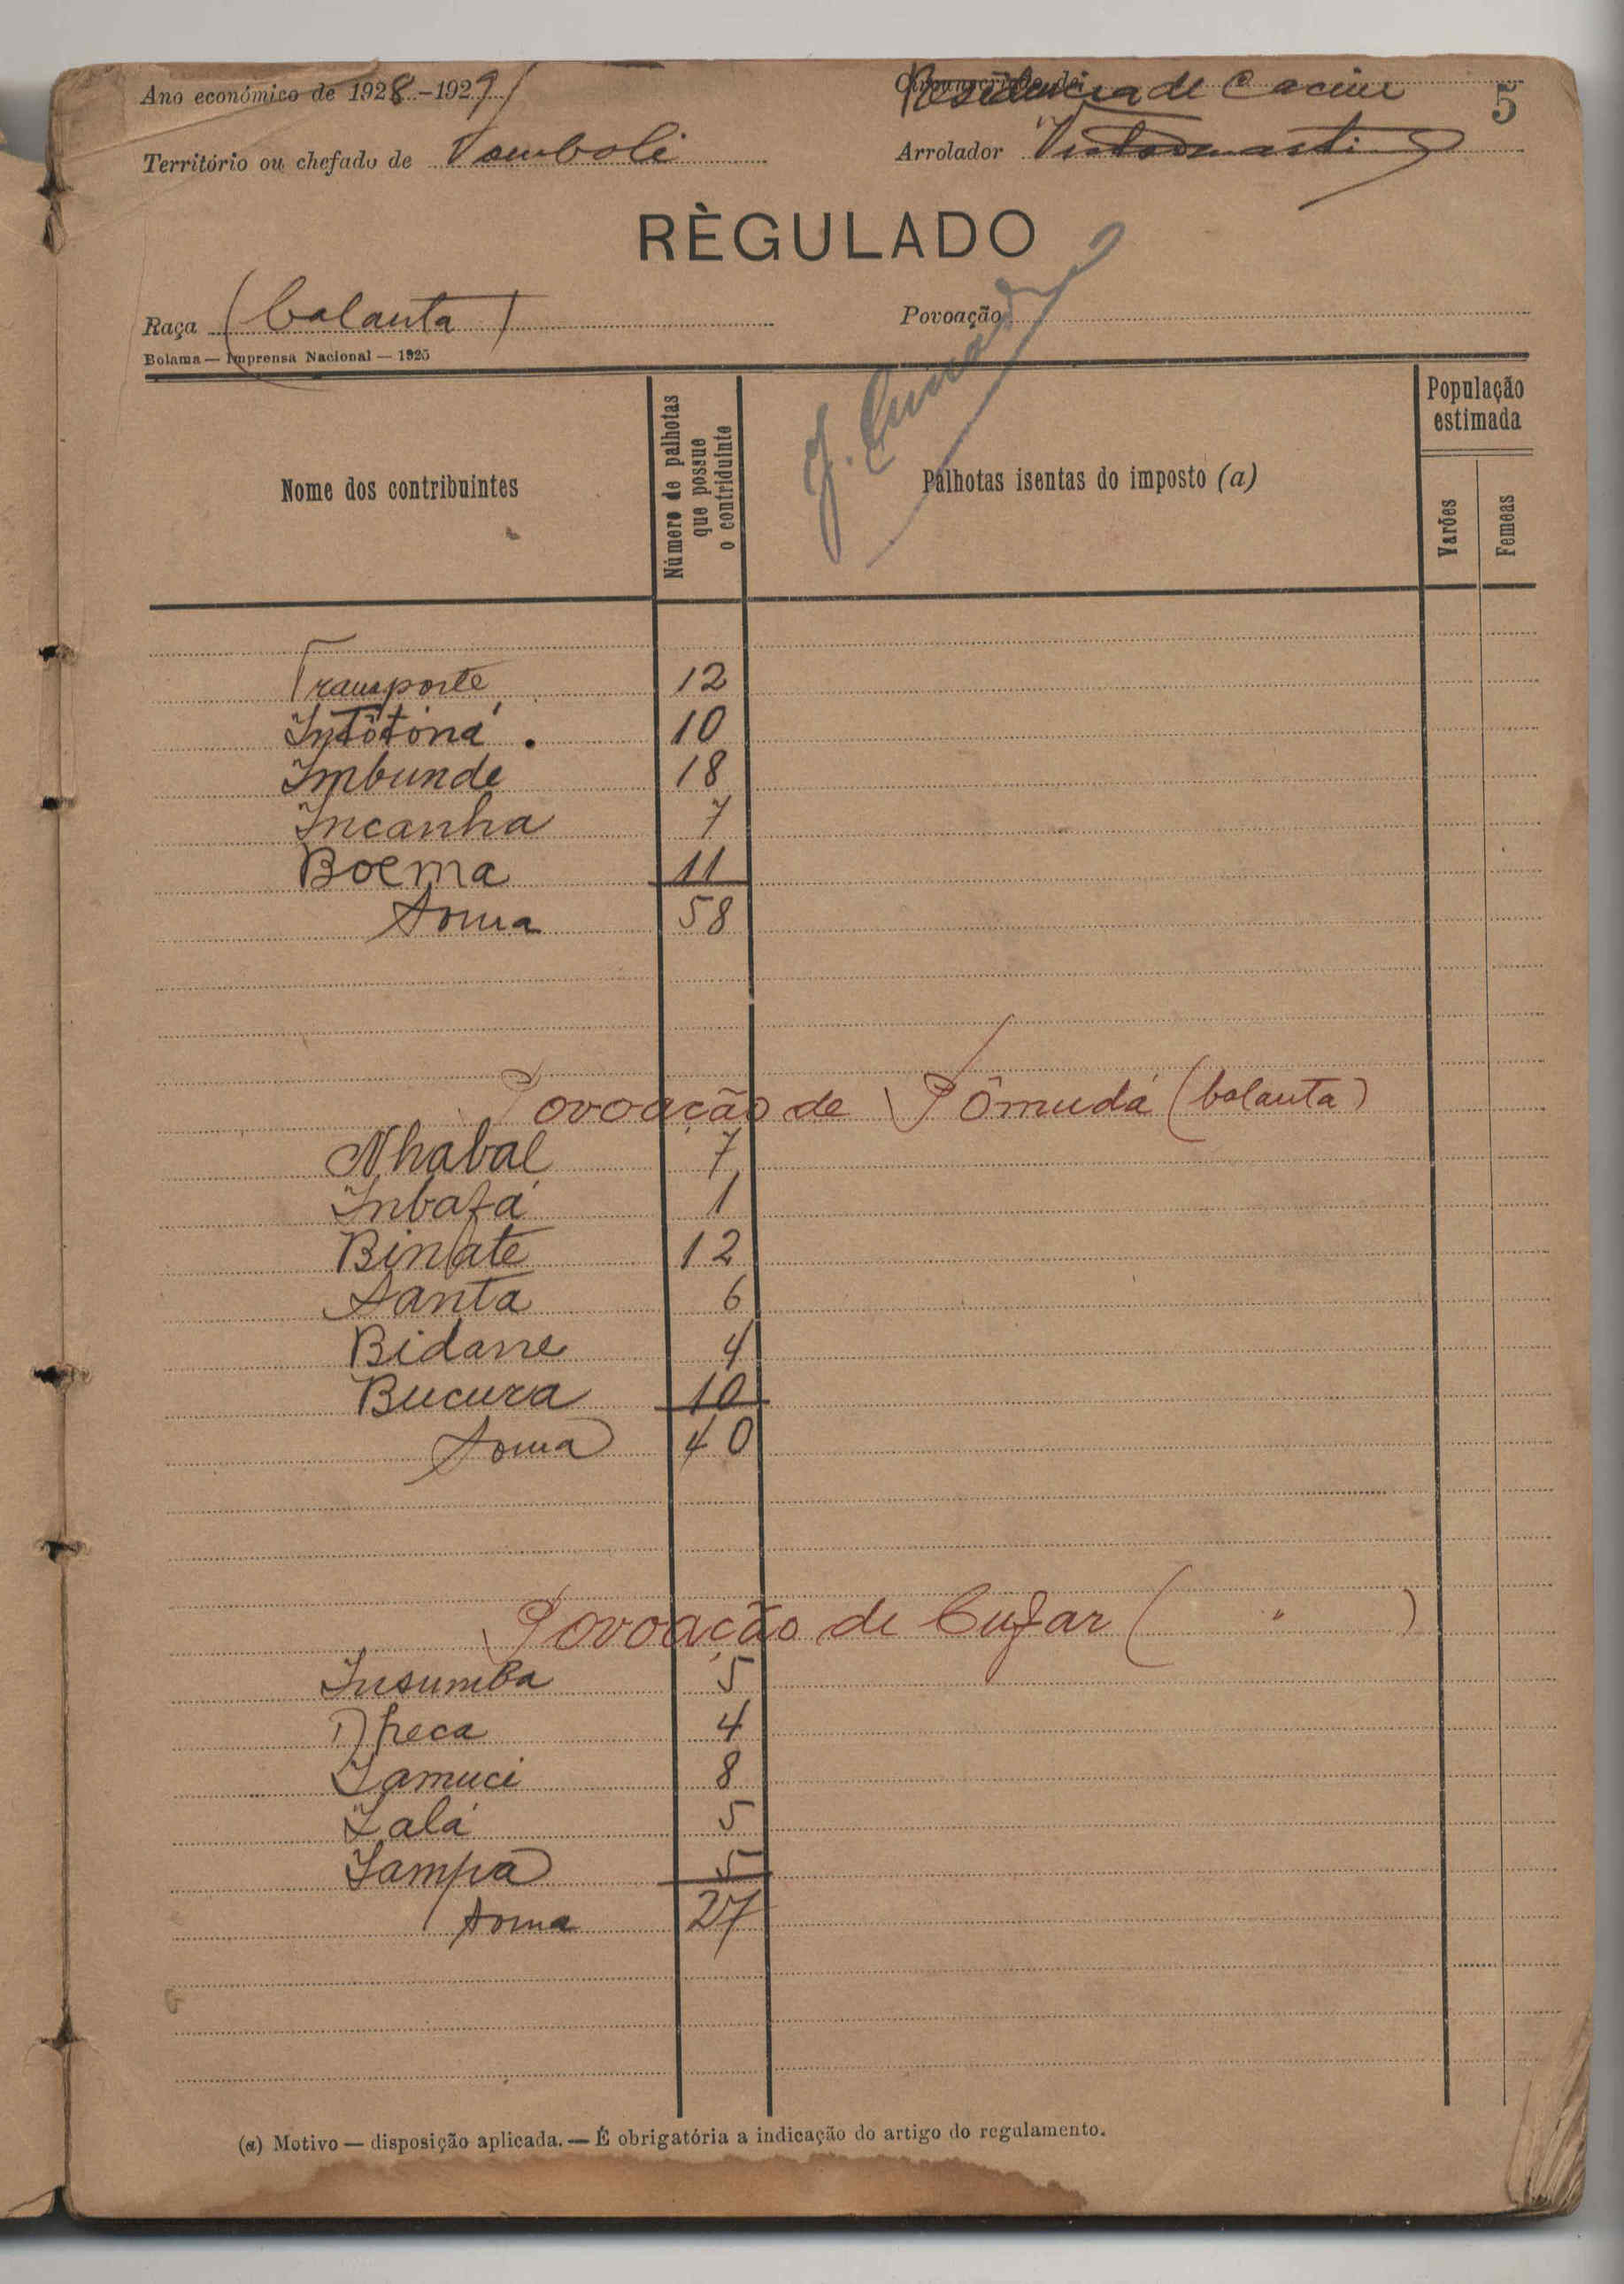 Ano económico de 1928-1929
Residencia de Cacine
5
Território ou chefado de
Arrolador
RÈGULADO
Raça (balanta)
Povoação
Bolama — Imprensa Nacional — 1925
Nome dos contribuintes
Número de palhotas que possue o contriduinte
Palhotas isentas do imposto (a)
População estimada
Varões
Femeas
Transporte 12
Intôtoná . 10
Imbunde 18
Incanha 7
Boema 11
Soma 58
Povoação de Pômudá (balanta)
Nhabal 7
Inbafá 1
Binhate 12
Santa 6
Bidanne 4
Bucura 10
Soma 40
Povoação de Cufar ( " )
Insumba 5
Dheca 4
Iamuci 8
Lalá 5
Iampa 5
Soma 27
(a) Motivo — disposição aplicada. — É obrigatória a indicação do artigo do regulamento.